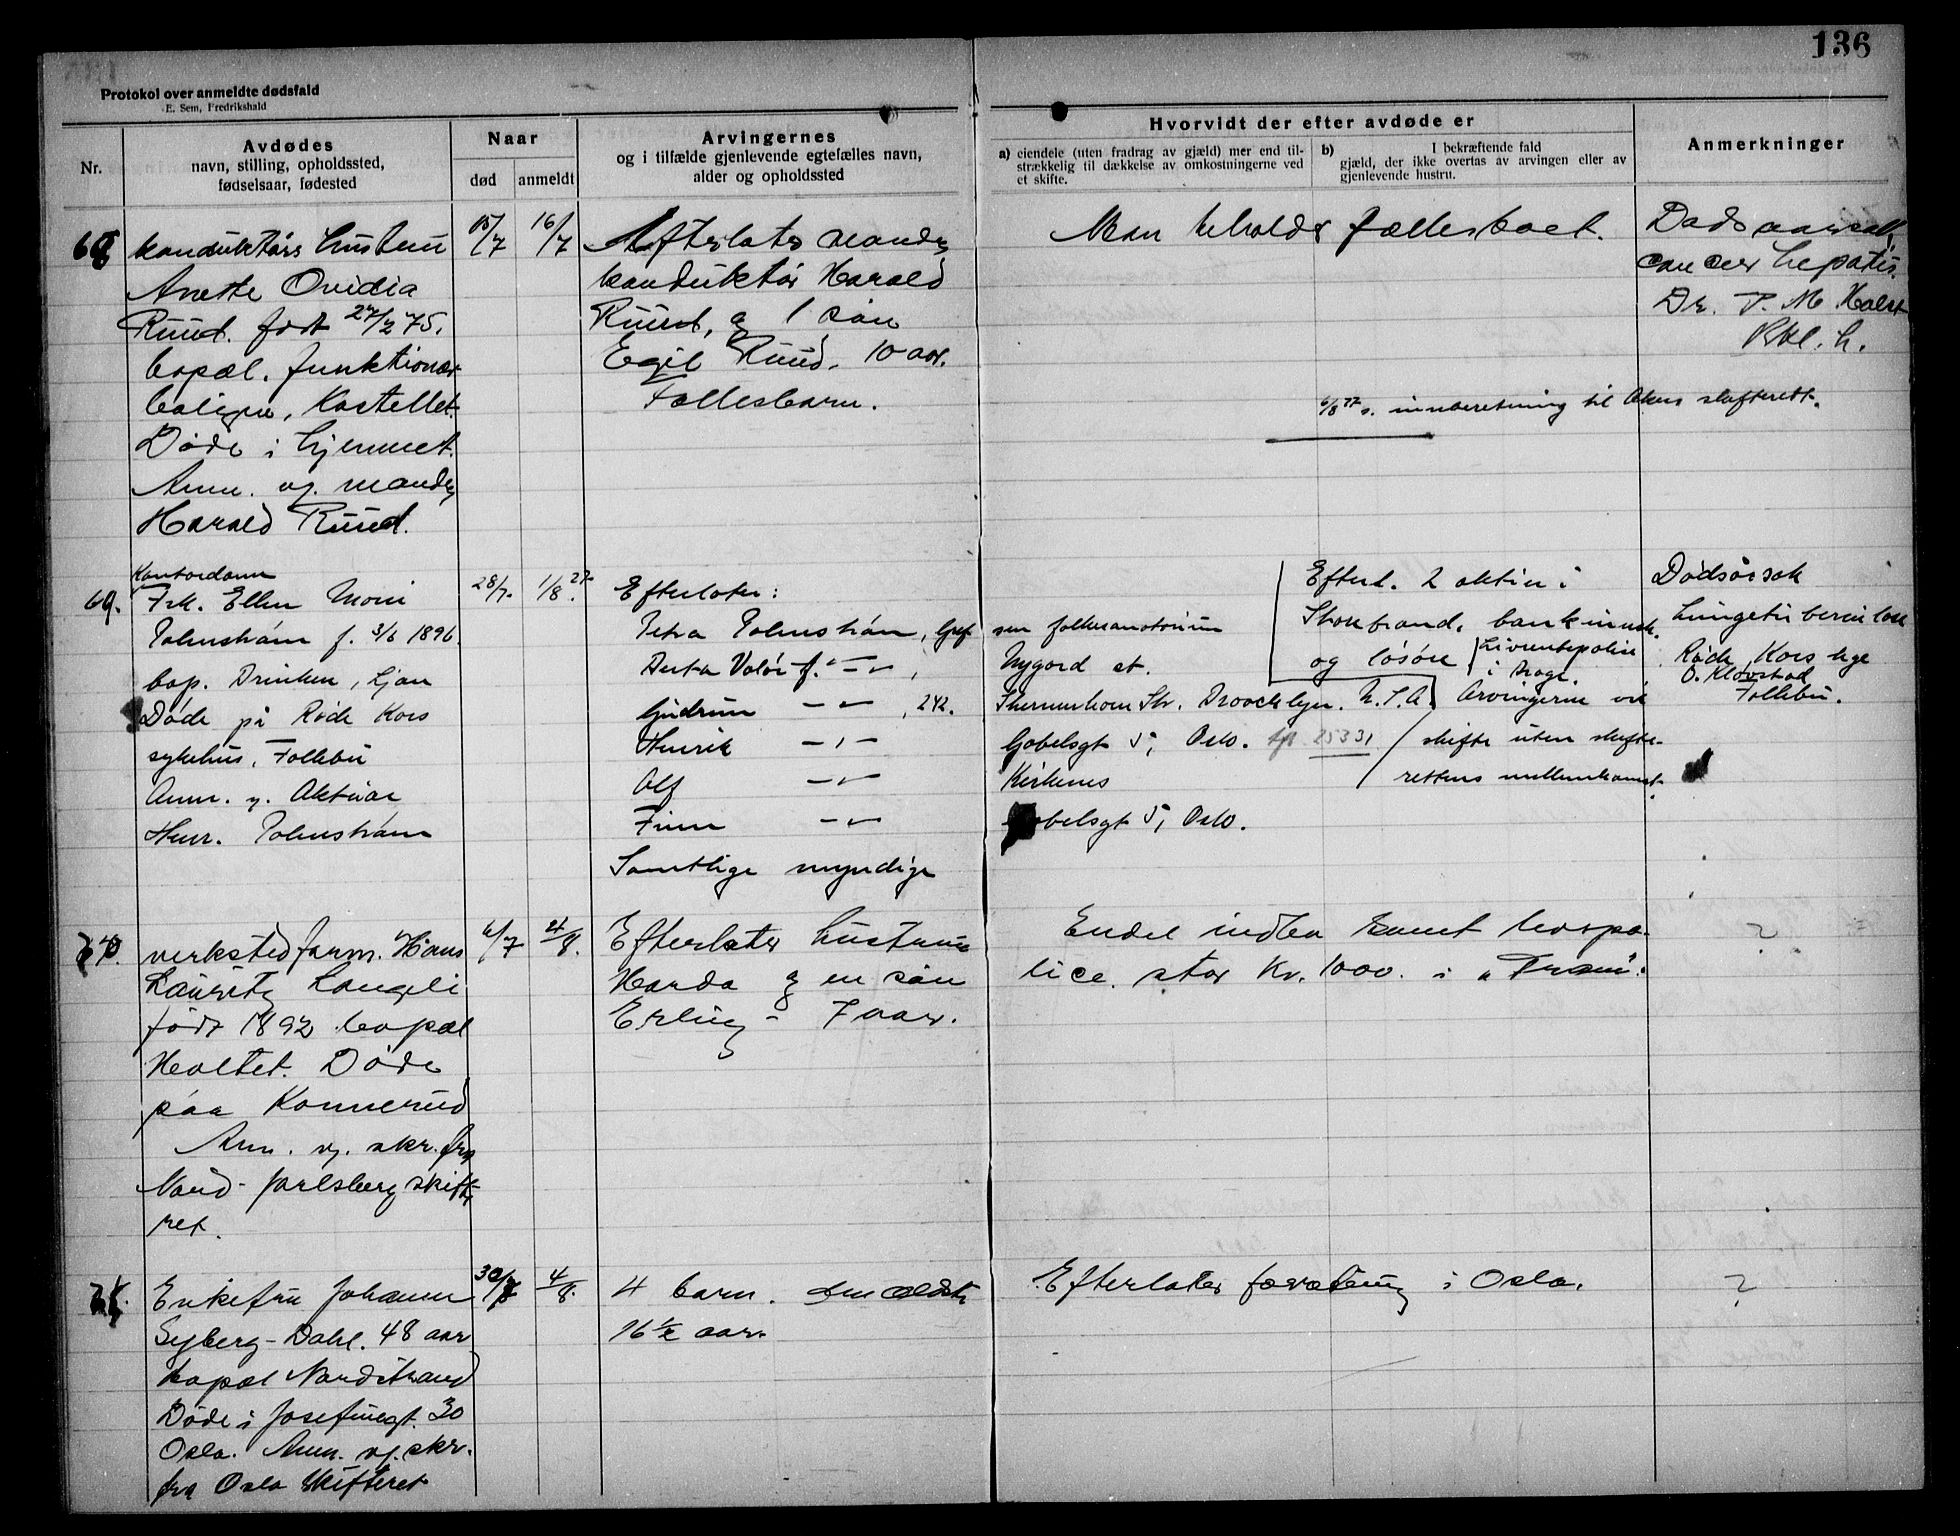 136
Protokol over anmeldte dødsfald
E. Sem, Fredrikshald
Nr.
Avdødes
navn, stilling, opholdssted,
fødselsaar, fødested
Naar
død
anmeldt
Arvingernes
og i tilfælde gjenlevende egtefælles navn,
alder og opholdssted
Hvorvidt der efter avdøde er
a) eiendele (uten fradrag av gjæld) mer end til-
strækkelig til dækkelse av omkostningerne ved
et skifte.
b) I bekræftende fald
gjæld, der ikke overtas av arvingen eller av
gjenlevende hustru.
Anmerkninger
68
konduktørs hustru
Anette Ovidia
Ruud. født 27/2 75.
bopæl. funktionær
boligen, Kastellet.
Døde i hjemmet.
Anm. av manden
Harald Ruud.
15/7
16/7
Efterlater manden
konduktør Harald
Ruud, og 1 søn
Egil Ruud. 10 aar.
Fællesbarn.
Man beholder fællesboet.
Dødsaarsak
cancer hepatis.
Dr. P. M. Holst
6/8 27 s. innberetning til Akers skifterett.
69.
Kontordame
Frk. Ellen Moni
Palmstrøm f. 3/6 1896
bop. Drinken, Ljan
Døde på Røde Kors
sykehus, Follebu
Anm. av Aktuar
Henr. Palmstrøm
28/7.
1/8 27.
Efterlater:
Petra Palmstrøm, Gref
sen folkesanatorium
Nygård st.
Gudrun — " — , 242.
Henrik — " —
Alf — " —
Finn — " —
Samtlige myndige
Gabelsgt 5, Oslo. tlf. 25331
Kirkenes
Gabelsgt 5, Oslo.
Efterl. 2 aktier i
Storebrand, bankinnsk.
og løsøre
Livrentepolise
i Norge.
Arvingerne vil
skifte uten skifte-
rettens mellemkomst.
Dødsårsak
Lungetuberculose
Røde Kors lege
O. Kløvstad
Follebu.
70.
verkstedform. Hans
Lauritz Langeli
født 1892 bopæl
Holtet. Døde
paa Konnerud
Anm. av. skr. fra
Nord-Jarlsberg skifte
ret.
6/7
4/8.
Efterlater hustrue
Harda og en søn
Erling - 7 aar.
Endel indbo samt livspo-
lice stor Kr. 1000. i "Fram".
?
71.
Enkefru Johanne
Syberg-Dahl. 48 aar
bopæl Nordstrand
Døde i Josefinegt. 30
Oslo. Anm. av. skr.
fra Oslo Skifteret
30/7
4/8.
4 barn. den ældste
16 1/2 aar.
Efterlater forretning i Oslo.
?